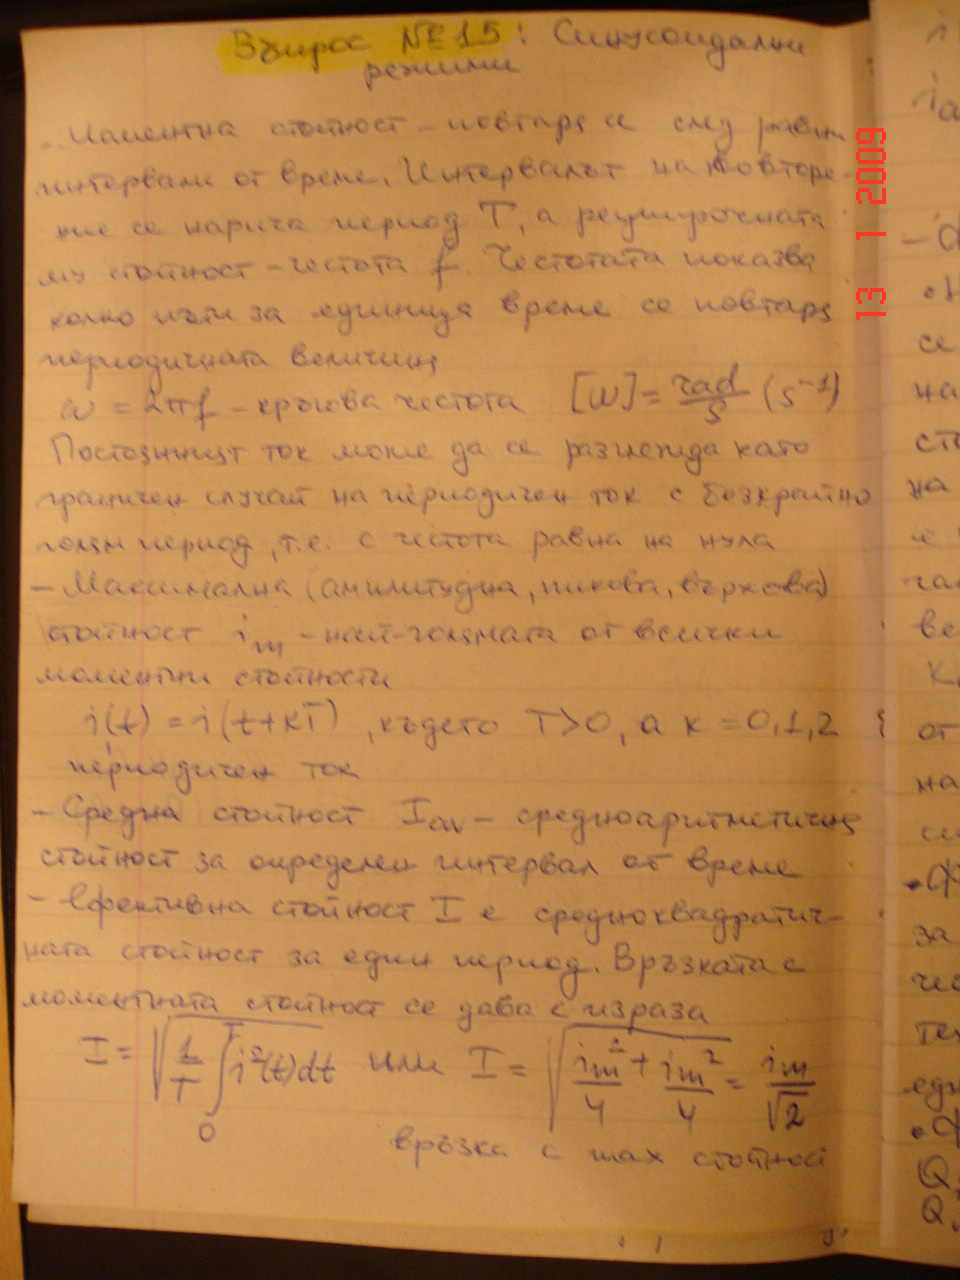 Въпрос №15: Синусоидални
режими
- Моментна стойност - повтаря се след равни
интервали от време. Интервалът на повторе-
ние се нарича период T, а реципрочната
му стойност - честота f. Честотата показва
колко пъти за единица време се повтаря
периодичната величина
ω = 2πf - кръгова честота [ω] = rad/s (s⁻¹)
Постоянният ток може да се разглежда като
граничен случай на периодичен ток с безкрайно
голям период, т.е. с честота равна на нула
- Максимална (амплитудна, пикова, върхова)
стойност iₘ - най-голямата от всички
моментни стойности
i(t) = i(t+kT), където T>0, а k = 0,1,2
периодичен ток
- Средна стойност Iav - средноаритметична
стойност за определен интервал от време
- Ефективна стойност I е средноквадратич-
ната стойност за един период. Връзката с
моментната стойност се дава с израза
I = √(1/T ∫₀ᵀ i²(t)dt) или I = √(iₘ²/4 + iₘ²/4) = iₘ/√2
връзка с max стойност
13 1 2009
i
ia
се
на
сто
на
е
ве
от
на
за
чес
тел
Q
Q